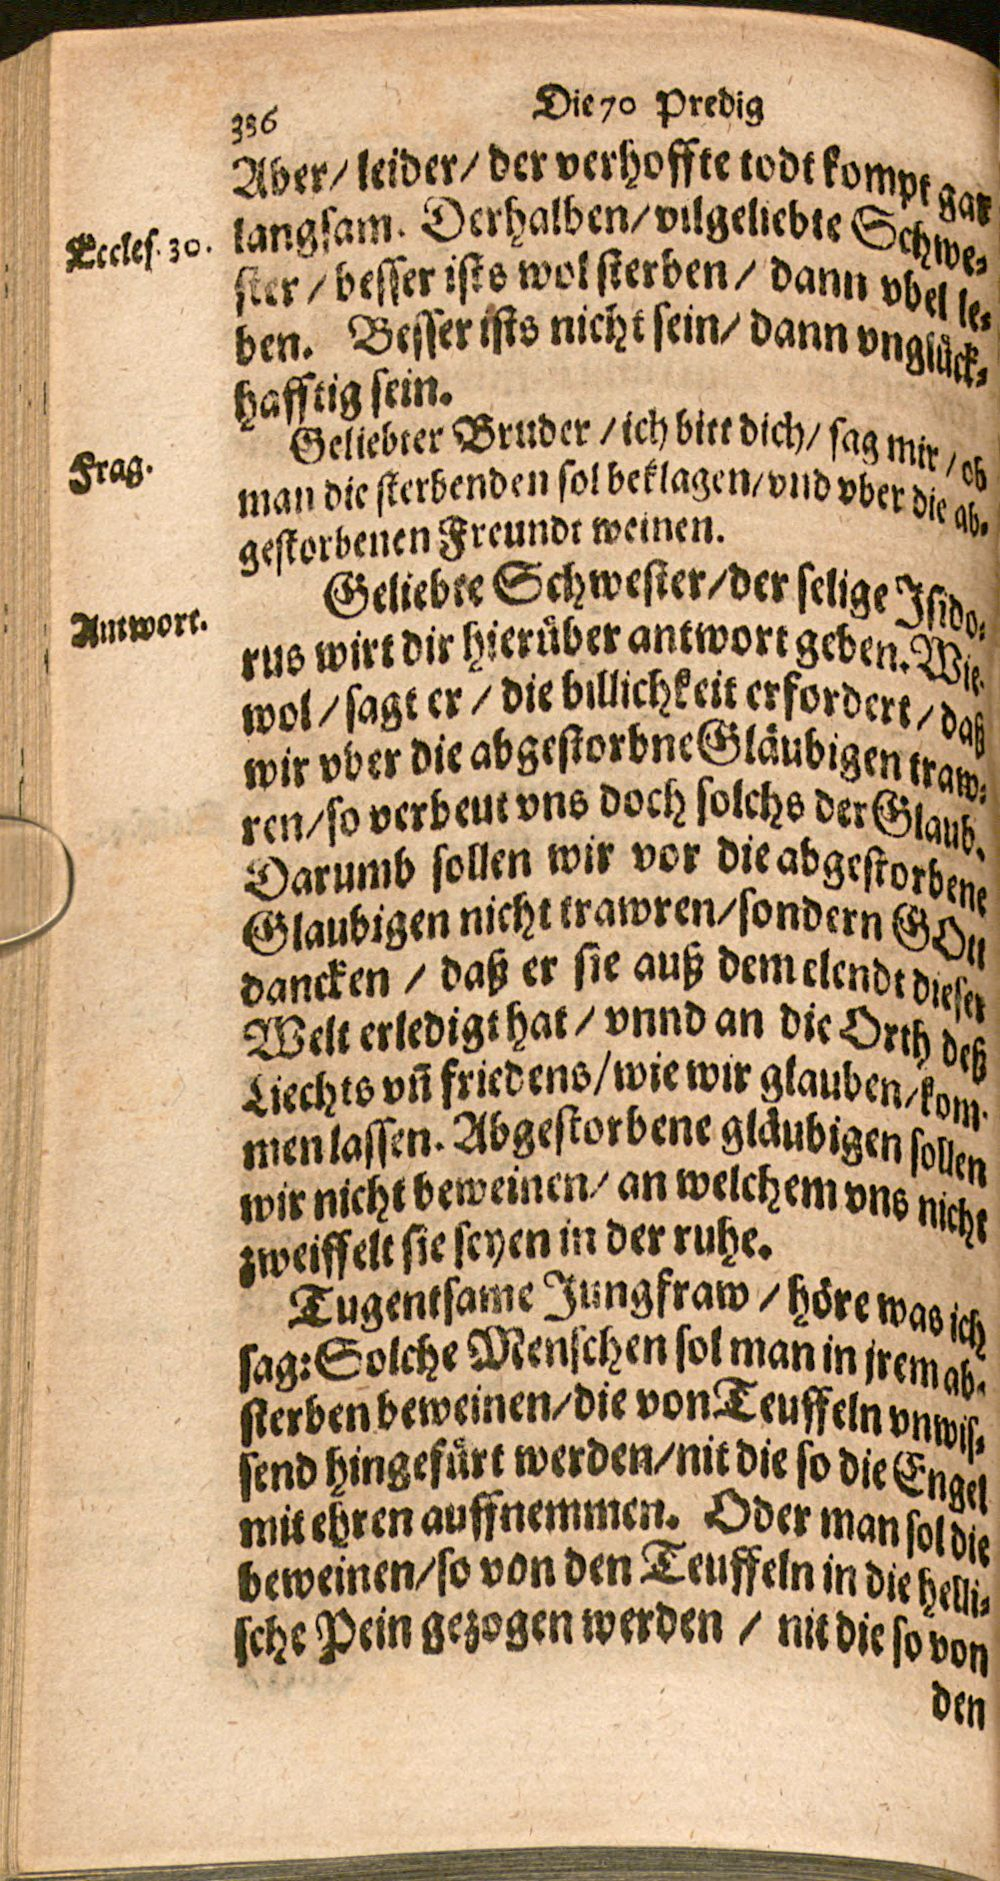 336
Die 70 Predig
Aber/ leider/ der verhoffte todt kompt gar
langsam. Derhalben/ vilgeliebte Schwe-
Eccles. 30.
ster / besser ists wol sterben / dann vbel le-
ben. Besser ists nicht sein/ dann vnglück-
hafftig sein.
Geliebter Bruder / ich bitt dich/ sag mir / ob
Frag.
man die sterbenden sol beklagen/ vnd vber die ab-
gestorbenen Freundt weinen.
Geliebte Schwester/ der selige Isido-
Antwort.
rus wirt dir hierüber antwort geben. Wie-
wol / sagt er / die billichkeit erfordert / daß
wir vber die abgestorbne Gläubigen traw-
ren/ so verbeut vns doch solchs der Glaub.
Darumb sollen wir vor die abgestorbene
Glaubigen nicht trawren/ sondern GOtt
dancken / daß er sie auß dem elendt dieser
Welt erledigt hat / vnnd an die Orth deß
Liechts vñ friedens/ wie wir glauben/ kom-
men lassen. Abgestorbene gläubigen sollen
wir nicht beweinen/ an welchem vns nicht
zweiffelt sie seyen in der ruhe.
Tugentsame Jungfraw / höre was ich
sag: Solche Menschen sol man in jrem ab-
sterben beweinen/ die von Teuffeln vnwis-
send hingefürt werden/ nit die so die Engel
mit ehren auffnemmen. Oder man sol die
beweinen/ so von den Teuffeln in die helli-
sche Pein gezogen werden / nit die so von
den